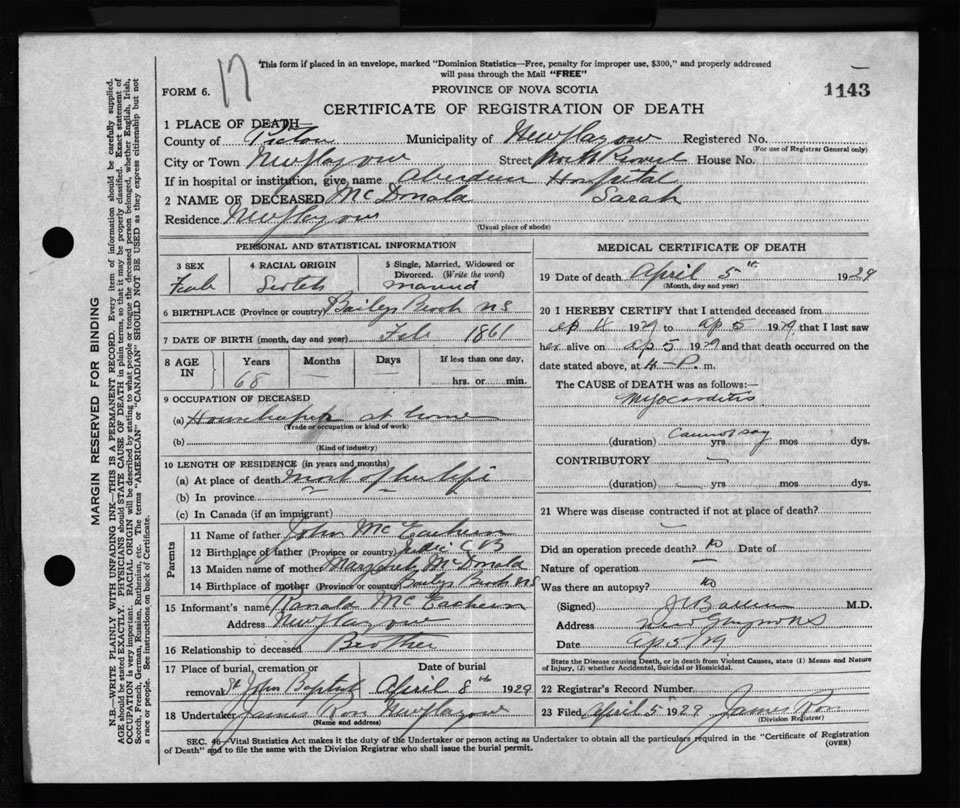 17
This form if placed in an envelope, marked "Dominion Statistics—Free, penalty for improper use, $300," and properly addressed
will pass through the Mail "FREE"
FORM 6.
PROVINCE OF NOVA SCOTIA
1143
CERTIFICATE OF REGISTRATION OF DEATH
1 PLACE OF DEATH—
County of Pictou Municipality of New Glasgow Registered No.
(For use of Registrar General only)
City or Town New Glasgow Street House No.
If in hospital or institution, give name Aberdeen Hospital
2 NAME OF DECEASED McDonald Sarah
Residence New Glasgow
(Usual place of abode)
PERSONAL AND STATISTICAL INFORMATION
3 SEX
4 RACIAL ORIGIN
5 Single, Married, Widowed or
Divorced. (Write the word)
Scotch
married
6 BIRTHPLACE (Province or country) Baileys Brook NS
7 DATE OF BIRTH (month, day and year) Feb. 1861
8 AGE
IN
Years
Months
Days
If less than one day,
68
hrs. or min.
9 OCCUPATION OF DECEASED
(a) Housekeeper at home
(Trade or occupation or kind of work)
(b)
(Kind of industry)
10 LENGTH OF RESIDENCE (in years and months)
(a) At place of death most of her life
(b) In province
(c) In Canada (if an immigrant)
Parents
11 Name of father John McEachern
12 Birthplace of father (Province or country) C B
13 Maiden name of mother Margaret McDonald
14 Birthplace of mother (Province or country) Baileys Brook NS
15 Informant's name Ranald McEachern
Address New Glasgow
16 Relationship to deceased Brother
17 Place of burial, cremation or
Date of burial
removal St John Baptist April 8th 1929
18 Undertaker James New Glasgow
(Name and address)
MEDICAL CERTIFICATE OF DEATH
19 Date of death April 5th 1929
(Month, day and year)
20 I HEREBY CERTIFY that I attended deceased from
Ap 1929 to Ap 5 1929 that I last saw
her alive on Ap 5 1929 and that death occurred on the
date stated above, at 4 P. m.
The CAUSE of DEATH was as follows:—
Myocarditis
Cannot say
(duration) yrs mos dys.
CONTRIBUTORY
(duration) yrs mos dys.
21 Where was disease contracted if not at place of death?
Did an operation precede death? No Date of
Nature of operation
Was there an autopsy? No
(Signed) M.D.
Address New Glasgow NS
Date Ap 5/29
State the Disease causing Death, or in death from Violent Causes, state (1) Means and Nature
of Injury, (2) whether Accidental, Suicidal or Homicidal.
22 Registrar's Record Number
23 Filed April 5 1929 James
(Division Registrar)
SEC. 46—Vital Statistics Act makes it the duty of the Undertaker or person acting as Undertaker to obtain all the particulars required in the "Certificate of Registration
of Death" and to file the same with the Division Registrar who shall issue the burial permit.
(OVER)
MARGIN RESERVED FOR BINDING
N.B.—WRITE PLAINLY WITH UNFADING INK—THIS IS A PERMANENT RECORD. Every item of information should be carefully supplied.
AGE should be stated EXACTLY. PHYSICIANS should STATE CAUSE OF DEATH in plain terms, so that it may be properly classified. Exact statement of
OCCUPATION is very important. RACIAL ORIGIN will be described by stating to what people or tongue the deceased person belonged, whether English, Irish,
Scotch, French, German, Russian, Ruthenian, etc. The terms "AMERICAN" or "CANADIAN" SHOULD NOT BE USED as they express citizenship but not
a race or people. See instructions on back of Certificate.